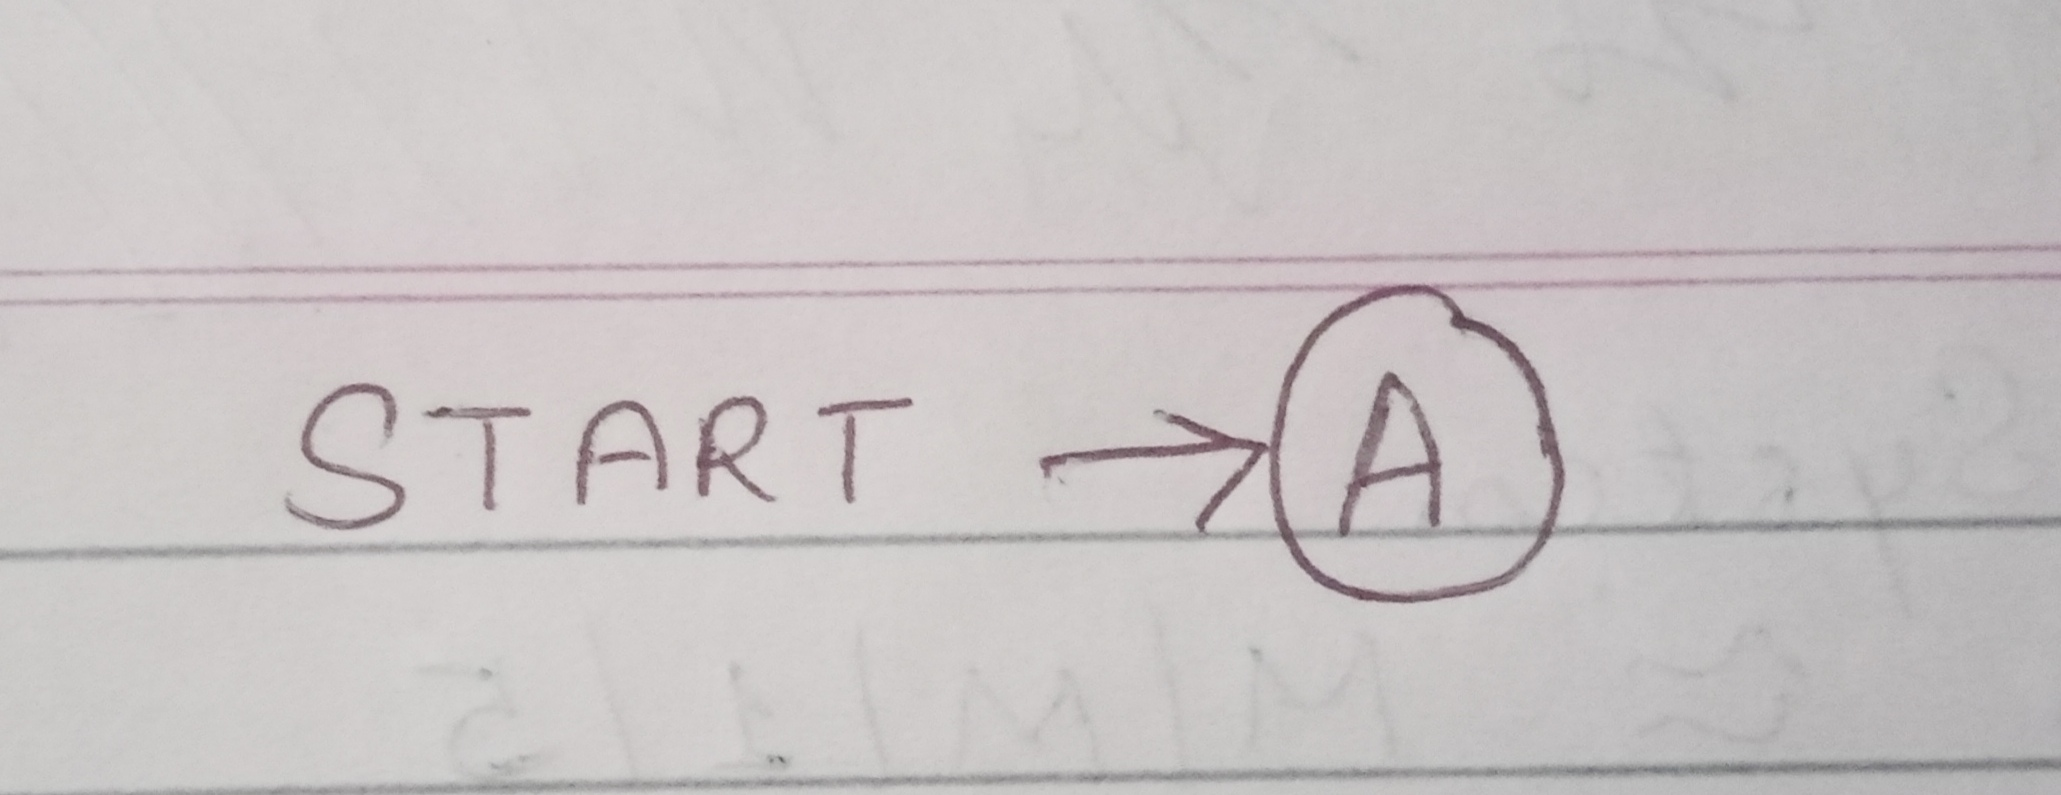 START → A